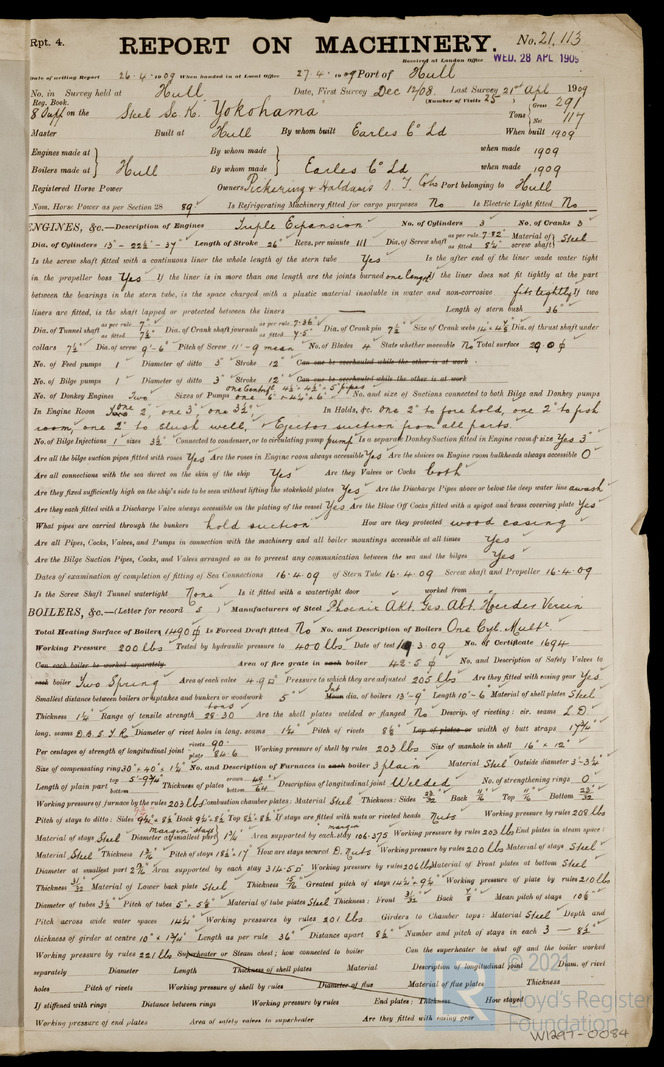 Rpt. 4.
REPORT ON MACHINERY.
No. 21,113
Received at London Office WED. 28 APL 1909
Date of writing Report 26.4.1909 When handed in at Local Office 27.4.1909 Port of Hull
No. in Survey held at Hull Date, First Survey Dec 12/08. Last Survey 21st Apl 1909
Reg. Book. (Number of Visits 25)
8 Supp on the Steel Sc. K. "Yokohama" Tons Gross 291 Net 117
Master Built at Hull By whom built Earles Co Ld When built 1909
Engines made at By whom made when made 1909
Boilers made at Hull By whom made Earles Co Ld when made 1909
Registered Horse Power Owners Pickering & Haldanes S. T. Co Port belonging to Hull
Nom. Horse Power as per Section 28 89 Is Refrigerating Machinery fitted for cargo purposes No Is Electric Light fitted No
ENGINES, &c.—Description of Engines Triple Expansion No. of Cylinders 3 No. of Cranks 3
Dia. of Cylinders 13" - 22½" - 37" Length of Stroke 26" Revs. per minute 111 Dia. of Screw shaft as per rule 7.82" as fitted 8¼" Material of screw shaft Steel
Is the screw shaft fitted with a continuous liner the whole length of the stern tube Yes Is the after end of the liner made water tight
in the propeller boss Yes If the liner is in more than one length are the joints burned one length If the liner does not fit tightly at the part
between the bearings in the stern tube, is the space charged with a plastic material insoluble in water and non-corrosive fits tightly If two
liners are fitted, is the shaft lapped or protected between the liners — Length of stern bush 36"
Dia. of Tunnel shaft as per rule 7" as fitted 7½" Dia. of Crank shaft journals as per rule 7.36" as fitted 7.5" Dia. of Crank pin 7½" Size of Crank webs 14 × 4⅞ Dia. of thrust shaft under
collars 7½" Dia. of screw 9'-6" Pitch of Screw 11'-9" mean No. of Blades 4 State whether moveable No Total surface 29.0 ф
No. of Feed pumps 1 Diameter of ditto 3" Stroke 12" Can one be overhauled while the other is at work
No. of Bilge pumps 1 Diameter of ditto 3" Stroke 12" Can one be overhauled while the other is at work
No. of Donkey Engines Two Sizes of Pumps No. and size of Suctions connected to both Bilge and Donkey pumps
In Engine Room one 2", one 3" one 3½" In Holds, &c. One 2" to fore hold, one 2" to fish
room, one 2" to slush well, Ejector suction from all parts.
No. of Bilge Injections 1 sizes 3½" Connected to condenser, or to circulating pump pump Is a separate Donkey Suction fitted in Engine room & size Yes 3"
Are all the bilge suction pipes fitted with roses Yes Are the roses in Engine room always accessible Yes Are the sluices on Engine room bulkheads always accessible 0
Are all connections with the sea direct on the skin of the ship Yes Are they Valves or Cocks both
Are they fixed sufficiently high on the ship's side to be seen without lifting the stokehold plates Yes Are the Discharge Pipes above or below the deep water line awash
Are they each fitted with a Discharge Valve always accessible on the plating of the vessel Yes Are the Blow Off Cocks fitted with a spigot and brass covering plate Yes
What pipes are carried through the bunkers hold suction How are they protected wood casing
Are all Pipes, Cocks, Valves, and Pumps in connection with the machinery and all boiler mountings accessible at all times Yes
Are the Bilge Suction Pipes, Cocks, and Valves arranged so as to prevent any communication between the sea and the bilges Yes
Dates of examination of completion of fitting of Sea Connections 16.4.09 of Stern Tube 16.4.09 Screw shaft and Propeller 16.4.09
Is the Screw Shaft Tunnel watertight None Is it fitted with a watertight door worked from
BOILERS, &c.—(Letter for record S) Manufacturers of Steel Phoenix Akt. Ges. Abt. Hoerder Verein
Total Heating Surface of Boilers 1490 ф Is Forced Draft fitted No No. and Description of Boilers One Cyl. Mult.
Working Pressure 200 lbs Tested by hydraulic pressure to 400 lbs Date of test 3.09 No. of Certificate 1694
Can each boiler be worked separately Area of fire grate in each boiler 42.5 ф No. and Description of Safety Valves to
each boiler Two Spring Area of each valve 4.9 Pressure to which they are adjusted 205 lbs Are they fitted with easing gear Yes
Smallest distance between boilers or uptakes and bunkers or woodwork 5" Int Mean dia. of boilers 13'-9" Length 10'-6 Material of shell plates Steel
Thickness 1¼ Range of tensile strength 28.30 tons Are the shell plates welded or flanged No Descrip. of riveting: cir. seams L. D.
long. seams D.B.S.T.R. Diameter of rivet holes in long. seams 1¼ Pitch of rivets 8½ Lap of plates or width of butt straps 17¾
Per centages of strength of longitudinal joint rivets 90. plate 84.6 Working pressure of shell by rules 203 lbs Size of manhole in shell 16" × 12"
Size of compensating ring 30" × 40" × 1¼" No. and Description of Furnaces in each boiler 3 plain Material Steel Outside diameter 3'-3¼"
Length of plain part top 5'-9¾" bottom Thickness of plates crown 49/64 bottom Description of longitudinal joint Welded No. of strengthening rings 0
Working pressure of furnace by the rules 203 lbs Combustion chamber plates: Material Steel Thickness: Sides 23/32 Back 11/16 Top 11/16 Bottom 23/32
Pitch of stays to ditto: Sides 9¼ × 8½ Back 9¼ × 8½ Top 8½ × 8½ If stays are fitted with nuts or riveted heads Nuts Working pressure by rules 208 lbs
Material of stays Steel Diameter at smallest part margin stays 1¾ Area supported by each stay margin 106.375 Working pressure by rules 203 lbs End plates in steam space:
Material Steel Thickness Pitch of stays 18½ × 17 How are stays secured D. Nuts Working pressure by rules 200 lbs Material of stays Steel
Diameter at smallest part Area supported by each stay 314.5 Working pressure by rules 206 lbs Material of Front plates at bottom Steel
Thickness 31/32 Material of Lower back plate Steel Thickness 15/16 Greatest pitch of stays 14¼ × 9¼ Working pressure of plate by rules 210 lbs
Diameter of tubes 3½ Pitch of tubes 5" × 5⅛ Material of tube plates Steel Thickness: Front 31/32 Back ⅞ Mean pitch of stays 10⅛
Pitch across wide water spaces 14¼ Working pressures by rules 201 lbs Girders to Chamber tops: Material Steel Depth and
thickness of girder at centre 10" × 1¾ Length as per rule 36" Distance apart 8½ Number and pitch of stays in each 3 — 8½
Working pressure by rules 221 lbs Superheater or Steam chest; how connected to boiler Can the superheater be shut off and the boiler worked
separately Diameter Length Thickness of shell plates Material Description of longitudinal joint Diam. of rivet
holes Pitch of rivets Working pressure of shell by rules Diameter of flue Material of flue plates Thickness
If stiffened with rings Distance between rings Working pressure by rules End plates: Thickness How stayed
Working pressure of end plates Area of safety valves to superheater Are they fitted with easing gear
© 2021
Lloyd's Register
Foundation
W1297-0084